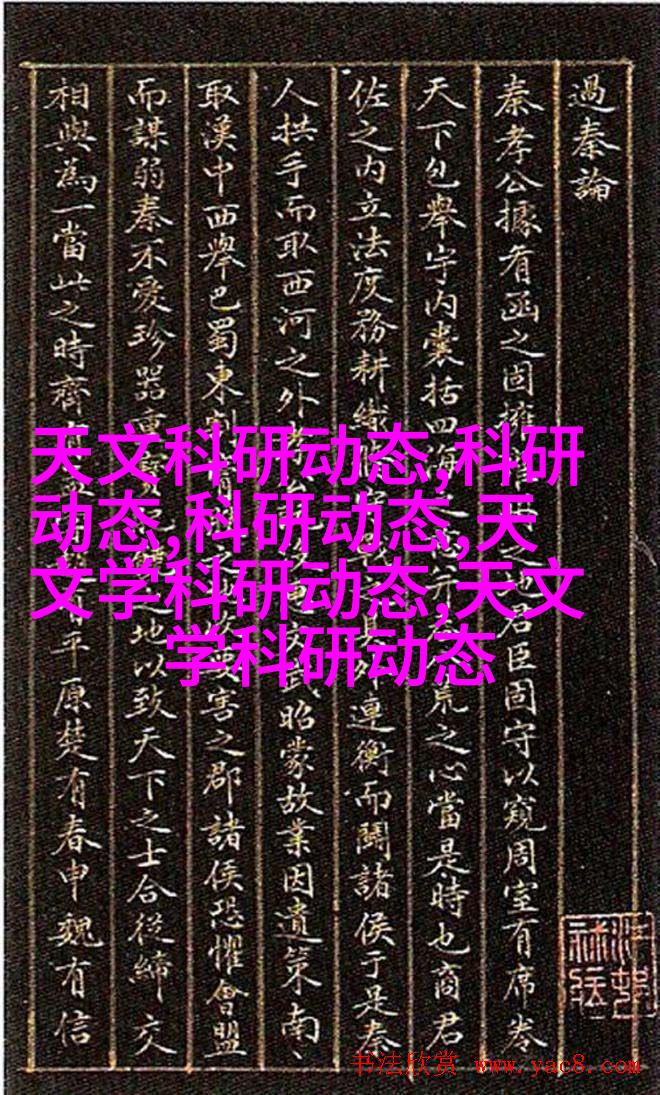 過秦論
秦孝公據有函之固擁 之 君臣固守以窺周室有席卷
天下包舉宇内囊括四海 荒之心當是時也商君
佐之内立法度務耕織 連衡而鬪諸侯于是秦
人拱手而取西河之外 昭蒙故業因遺策南、
取漢中西舉巴蜀東割 害之郡諸侯恐懼會盟
而謀弱秦不愛珍器重寶 地以致天下之士合從締交
相與為一當此之時齊 平原楚有春申魏有信
天文科研动态,科研
动态,科研动态,天
文学科研动态,天文
学科研动态
书法欣赏 www.yac8.com